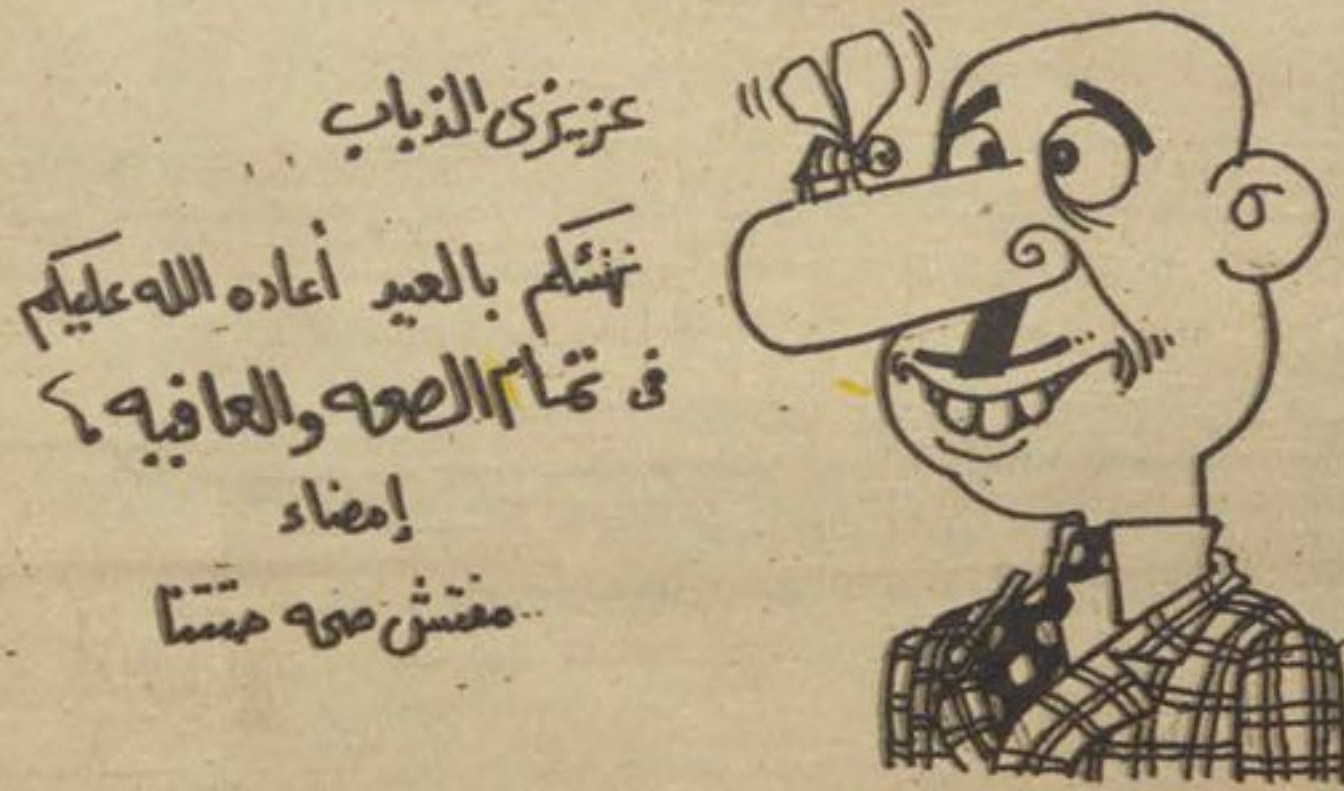 عزيزى الذباب
نهنئكم بالعيد أعاده الله عليكم
فى تمام الصحه والعافيه ؟
إمضاء
مفتش صحه حتتنا